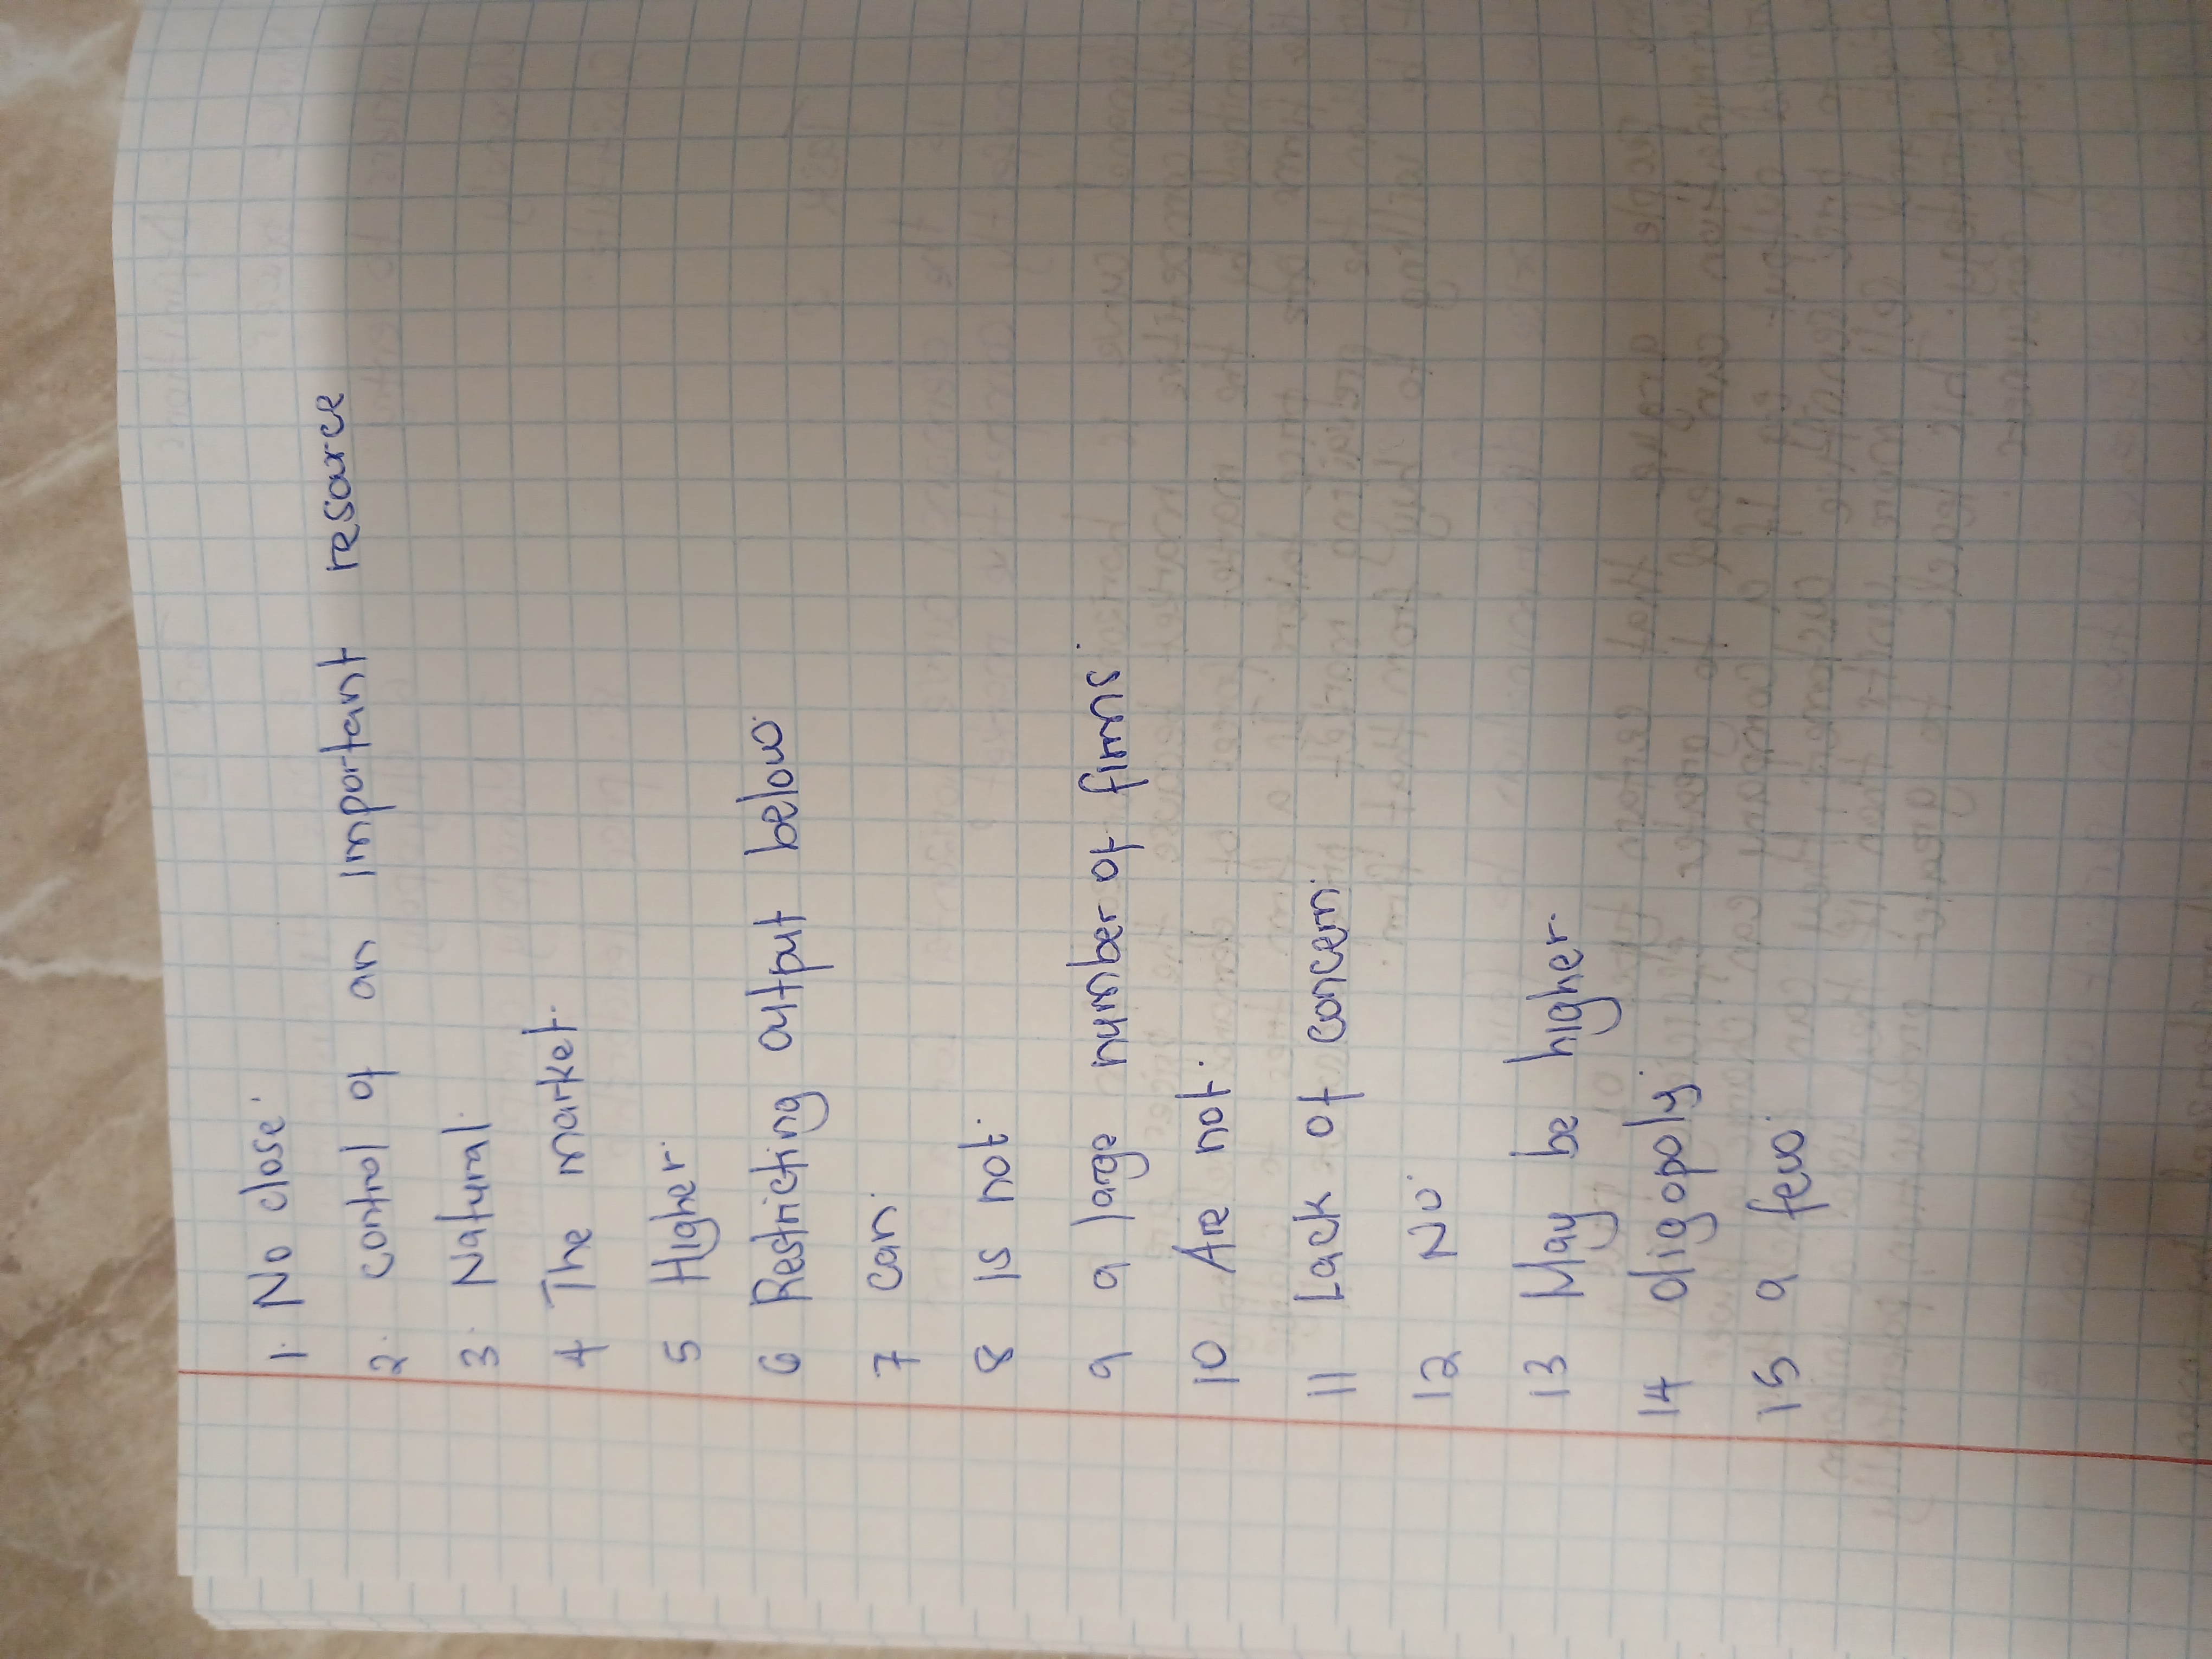 1. No close.
2. control of an important resource
3. Natural.
4 The market.
5 Higher.
6 Restricting output below.
7 can.
8 is not.
9 a lage number of firms.
10 Are not.
11 Lack of concern.
12 No.
13 May be higher.
14 oligopoly.
15 a few.